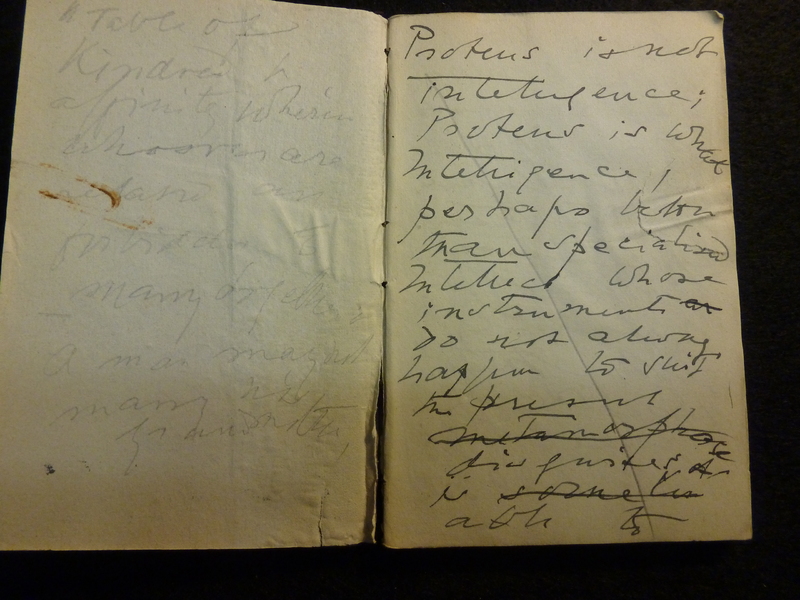 "Table of
Kindred &
affinity wherein
whosoever are
related are
forbidden to
marry
A man may not
marry his
grandmother
Proteus is not
intelligence;
Proteus is what
Intelligence,
perhaps better
than specialised
Intellect whose
instruments
do not always
happen to suit
the present
metamorphose
disguises
is sometim
able to